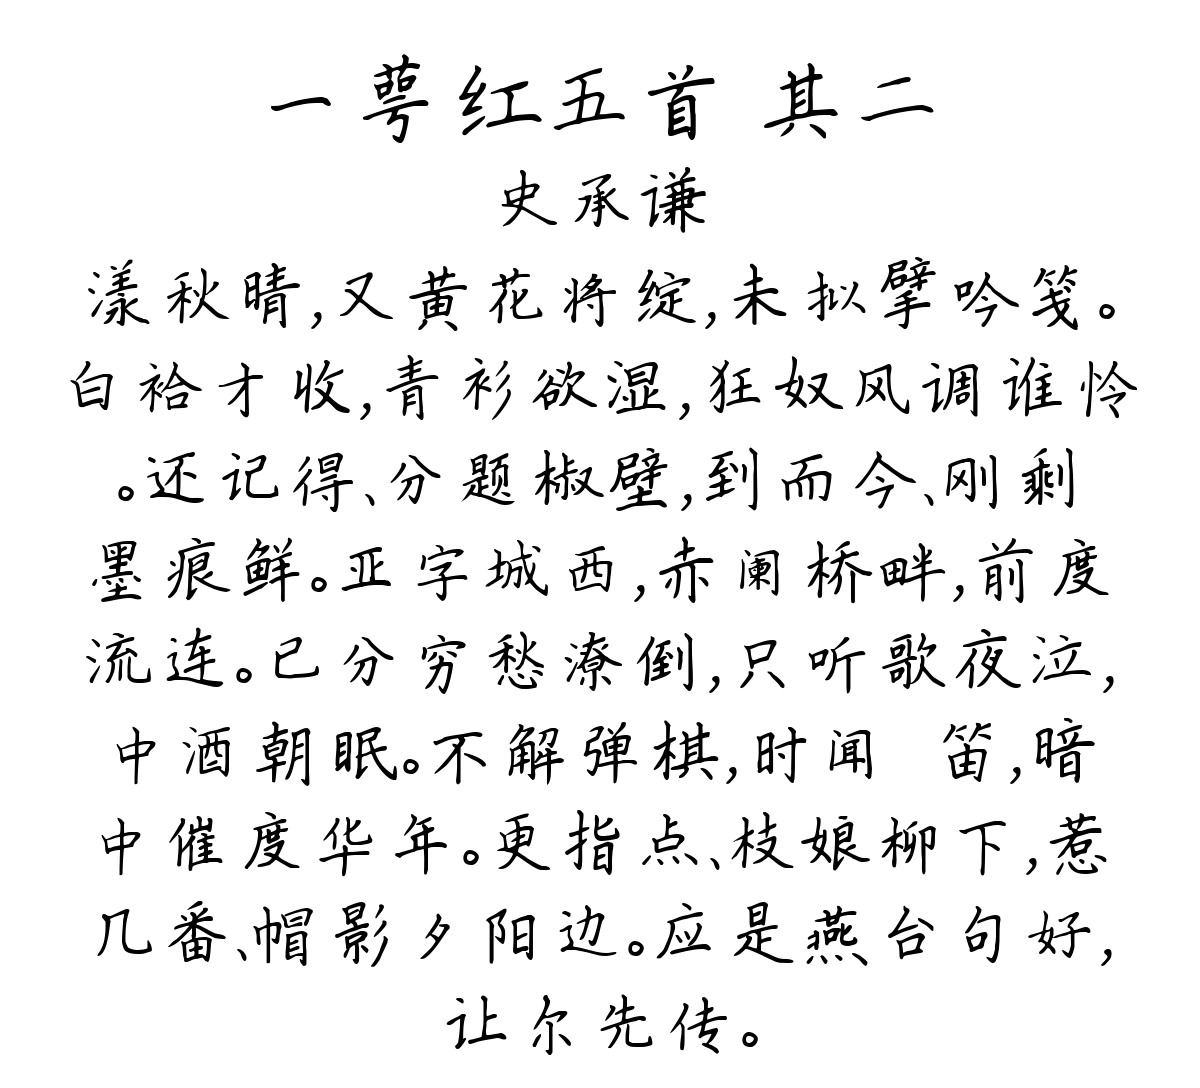 一萼红五首 其二
史承谦
漾秋晴,又黄花将绽,未拟擘吟笺。
白袷才收,青衫欲湿,狂奴风调谁怜
。还记得、分题椒壁,到而今、刚剩
墨痕鲜。亚字城西,赤阑桥畔,前度
流连。已分穷愁潦倒,只听歌夜泣,
中酒朝眠。不解弹棋,时闻 笛,暗
中催度华年。更指点、枝娘柳下,惹
几番、帽影夕阳边。应是燕台句好,
让尔先传。